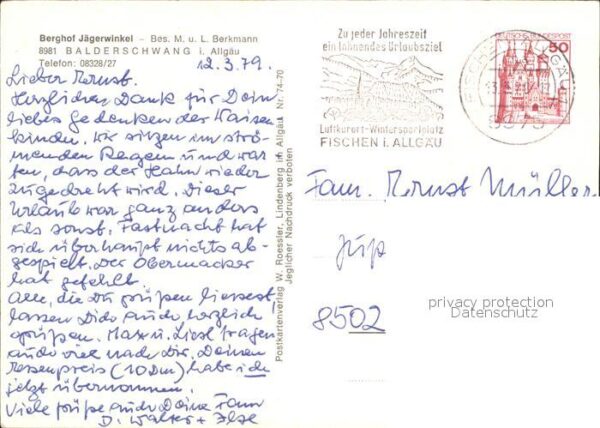 Berghof Jägerwinkel - Bes. M. u. L. Berkmann
8981 BALDERSCHWANG i. Allgäu
Telefon: 08328/27
12.3.79.
Lieber Ernst.
Herzlichen Dank für Dein
liebes gedenken der Waisen-
kinder. Wir sitzen im strö-
menden Regen und war-
ten, dass der Hahn wieder
zugedreht wird. Dieser
Urlaub war ganz anders
als sonst. Fastnacht hat
sich überhaupt nichts ab-
gespielt. Der Obermacker
hat gefehlt.
Alle, die Du grüßen liessest
lassen Dich auch herzlich
grüßen. Max u. Liesl fragen
auch viel nach Dir. Deinen
preis (10 DM) habe ich
jetzt übernommen.
Viele grüße auch Deine Fam
D. Walter + Ilse
Postkartenverlag W. Roessler, Lindenberg im Allgäu Nr. 74-70
Jeglicher Nachdruck verboten
Zu jeder Jahreszeit
ein lohnendes Urlaubsziel
Luftkurort-Wintersportplatz
FISCHEN i. ALLGÄU
DEUTSCHE BUNDESPOST
50
FISCHEN i. ALLGÄU
8975
Fam. Ernst Müller
8502
privacy protection
Datenschutz